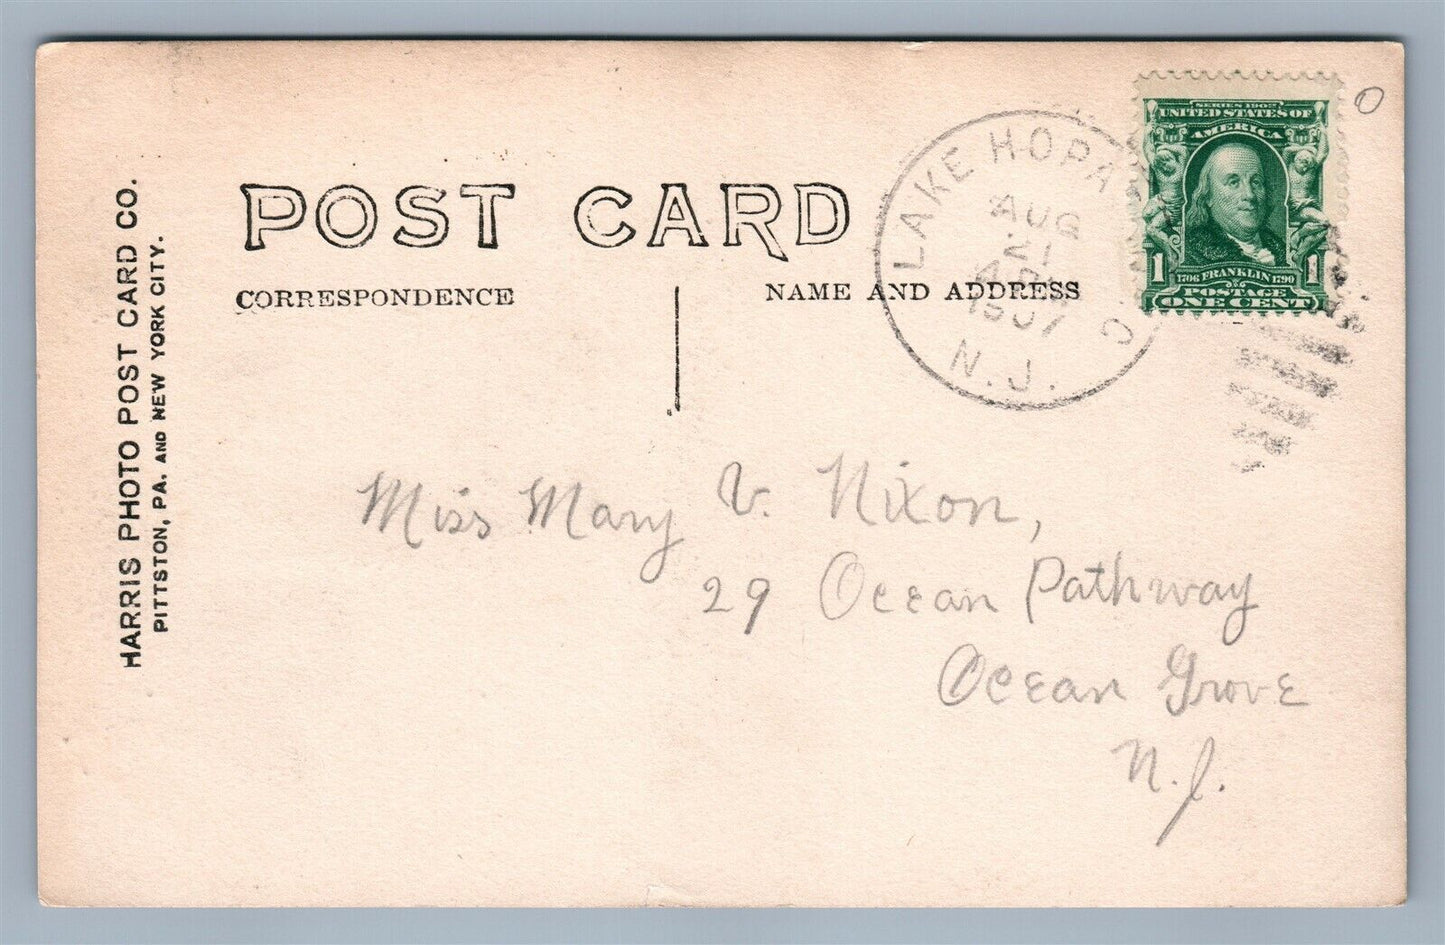 HARRIS PHOTO POST CARD CO.
PITTSTON, PA. AND NEW YORK CITY.
POST CARD
CORRESPONDENCE
NAME AND ADDRESS
LAKE HOPA C
AUG
21
1907
N.J.
SERIES 1902
UNITED STATES OF
AMERICA
1 1
1706 FRANKLIN 1790
POSTAGE
ONE CENT
O
Miss Mary V. Nixon,
29 Ocean Pathway
Ocean Grove
N.J.